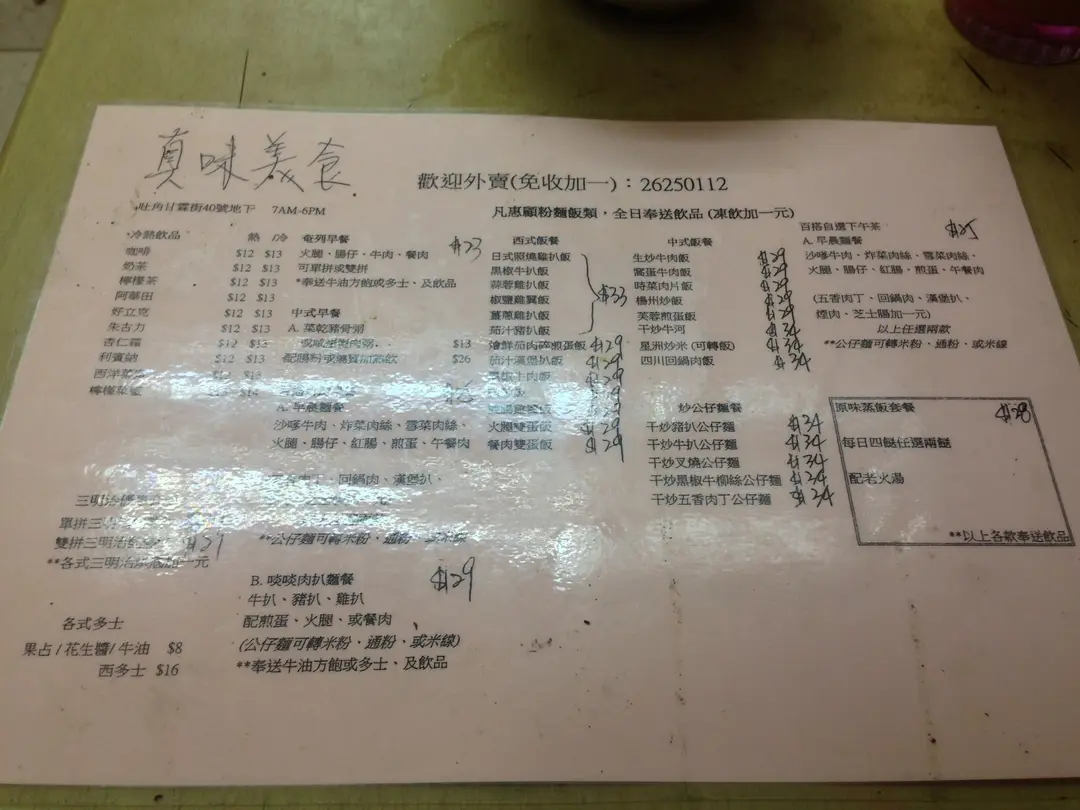 真味美食
歡迎外賣(免收加一)：26250112
旺角甘霖街40號地下 7AM-6PM
凡惠顧粉麵飯類，全日奉送飲品 (凍飲加一元)
冷熱飲品 熱 /冷
咖啡 $12 $13
奶茶 $12 $13
檸檬茶 $12 $13
阿華田 $12 $13
好立克 $12 $13
朱古力 $12 $13
杏仁霜 $12 $13
利賓納 $12 $13
西洋菜 $13
三明治
單拼三明
雙拼三明治
**各式三明治 加一元
各式多士
果占 / 花生醬/ 牛油 $8
西多士 $16
奄列早餐 $23
火腿、腸仔、牛肉、餐肉
可單拼或雙拼
*奉送牛油方飽或多士、及飲品
中式早餐
A. 菜乾豬骨粥
$13
$26
A. 早晨麵餐
沙嗲牛肉、炸菜肉絲、雪菜肉絲、
火腿、腸仔、紅腸、煎蛋、午餐肉
回鍋肉、漢堡扒、
**公仔麵可轉米粉，通粉、或米線
B. 啖啖肉扒麵餐 $29
牛扒、豬扒、雞扒
配煎蛋、火腿、或餐肉
(公仔麵可轉米粉、通粉、或米線)
**奉送牛油方飽或多士、及飲品
西式飯餐
日式照燒雞扒飯
黑椒牛扒飯
蒜蓉雞扒飯
椒鹽雞翼飯
薑蔥雞扒飯
茄汁豬扒飯
$33
鮮茄肉碎煎蛋飯 $29
茄汁漢堡扒飯 $29
$29
火腿雙蛋飯 $29
餐肉雙蛋飯 $29
中式飯餐
生炒牛肉飯 $29
窩蛋牛肉飯 $29
時菜肉片飯 $29
楊州炒飯 $29
芙蓉煎蛋飯 $29
干炒牛河 $34
星洲炒米 (可轉飯) $34
四川回鍋肉飯 $34
炒公仔麵餐
干炒豬扒公仔麵 $34
干炒牛扒公仔麵 $34
干炒叉燒公仔麵 $34
干炒黑椒牛柳絲公仔麵 $34
干炒五香肉丁公仔麵 $34
百搭自選下午茶 $25
A. 早晨麵餐
沙嗲牛肉、炸菜肉絲、雪菜肉絲、
火腿、腸仔、紅腸、煎蛋、午餐肉
(五香肉丁、回鍋肉、漢堡扒、
煙肉、芝士腸加一元)
以上任選兩款
**公仔麵可轉米粉、通粉、或米線
原味蒸飯套餐 $28
每日四餸任選兩餸
配老火湯
**以上各款奉送飲品